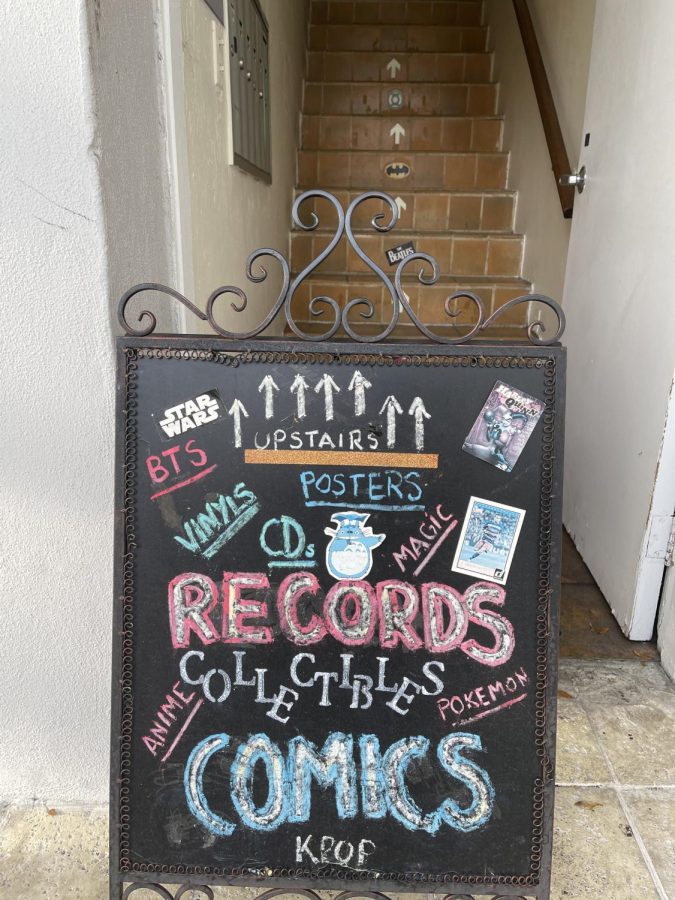 THE
BEATLES
STAR
WARS
UPSTAIRS
HARLEY
QUINN
BTS
POSTERS
VINYLS
CDs
MAGIC
RECORDS
COLLECTIBLES
ANIME
POKEMON
COMICS
KPOP